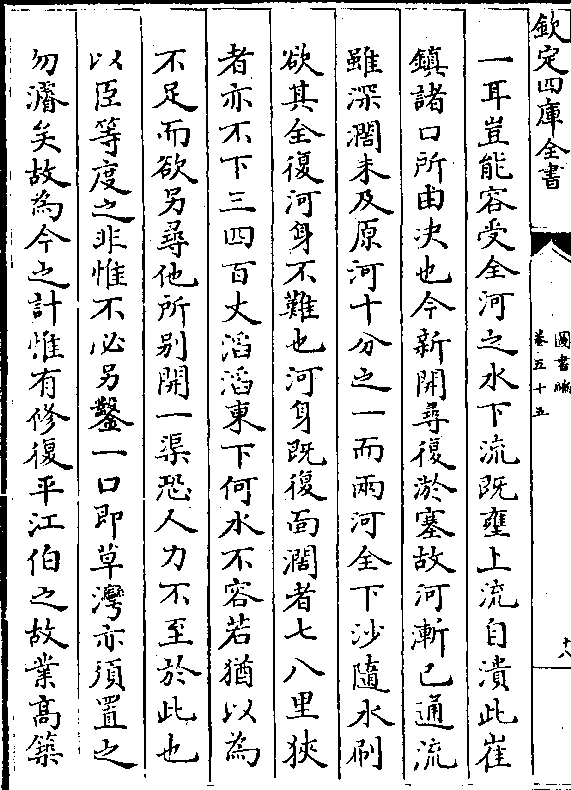 欽定四庫全書
圖書編
卷五十五
十八
一耳豈能容受全河之水下流既壅上流自潰此崔
鎮諸口所由决也今新開尋復淤塞故河漸已通流
雖深濶未及原河十分之一而兩河全下沙隨水刷
欲其全復河身不難也河身既復面濶者七八里狹
者亦不下三四百丈滔滔東下何水不容若猶以為
不足而欲另尋他所别開一渠恐人力不至於此也
以臣等度之非惟不必另鑿一口即草灣亦須置之
勿濬矣故為今之計惟有修復平江伯之故業髙築